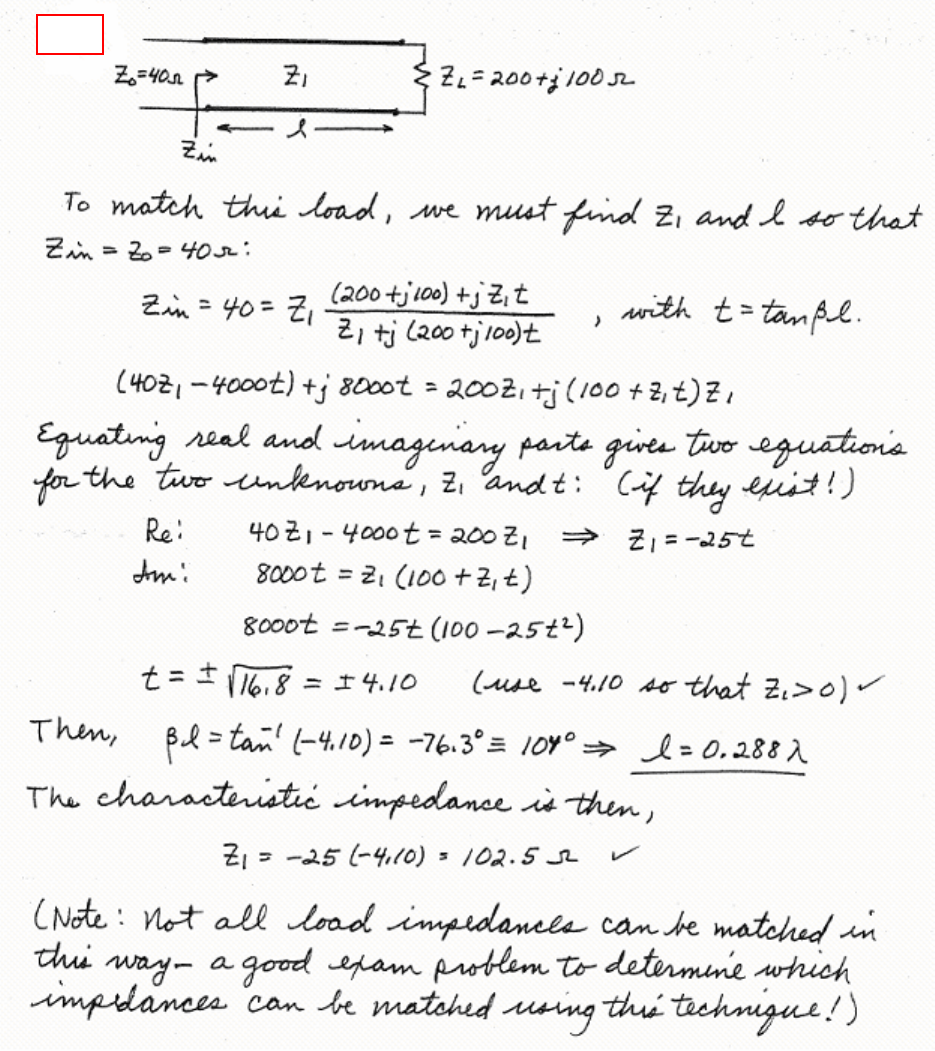 Z₀=40Ω Z₁ Z_L = 200+j100 Ω
l
Zin
To match this load, we must find Z₁ and l so that
Zin = Z₀ = 40Ω:
Zin = 40 = Z₁ ((200+j100)+jZ₁t)/(Z₁+j(200+j100)t) , with t = tanβl.
(40Z₁ - 4000t) + j8000t = 200Z₁ + j(100 + Z₁t)Z₁
Equating real and imaginary parts gives two equations
for the two unknowns, Z₁ and t: (if they exist!)
Re: 40Z₁ - 4000t = 200Z₁ ⇒ Z₁ = -25t
Im: 8000t = Z₁(100 + Z₁t)
8000t = -25t(100 - 25t²)
t = ±√16.8 = ±4.10 (use -4.10 so that Z₁>0) ✓
Then, βl = tan⁻¹(-4.10) = -76.3° ≡ 104° ⇒ l = 0.288λ
The characteristic impedance is then,
Z₁ = -25(-4.10) = 102.5 Ω ✓
(Note: Not all load impedances can be matched in
this way- a good exam problem to determine which
impedances can be matched using this technique!)